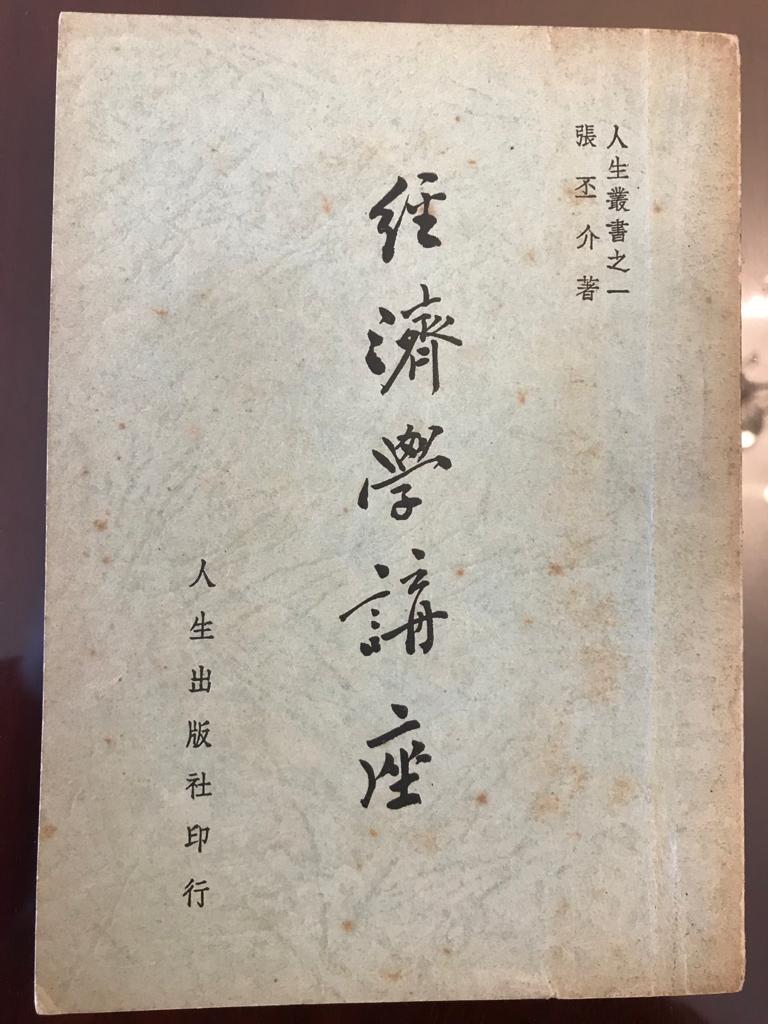 人生叢書之一
張丕介著
經濟學講座
人生出版社印行